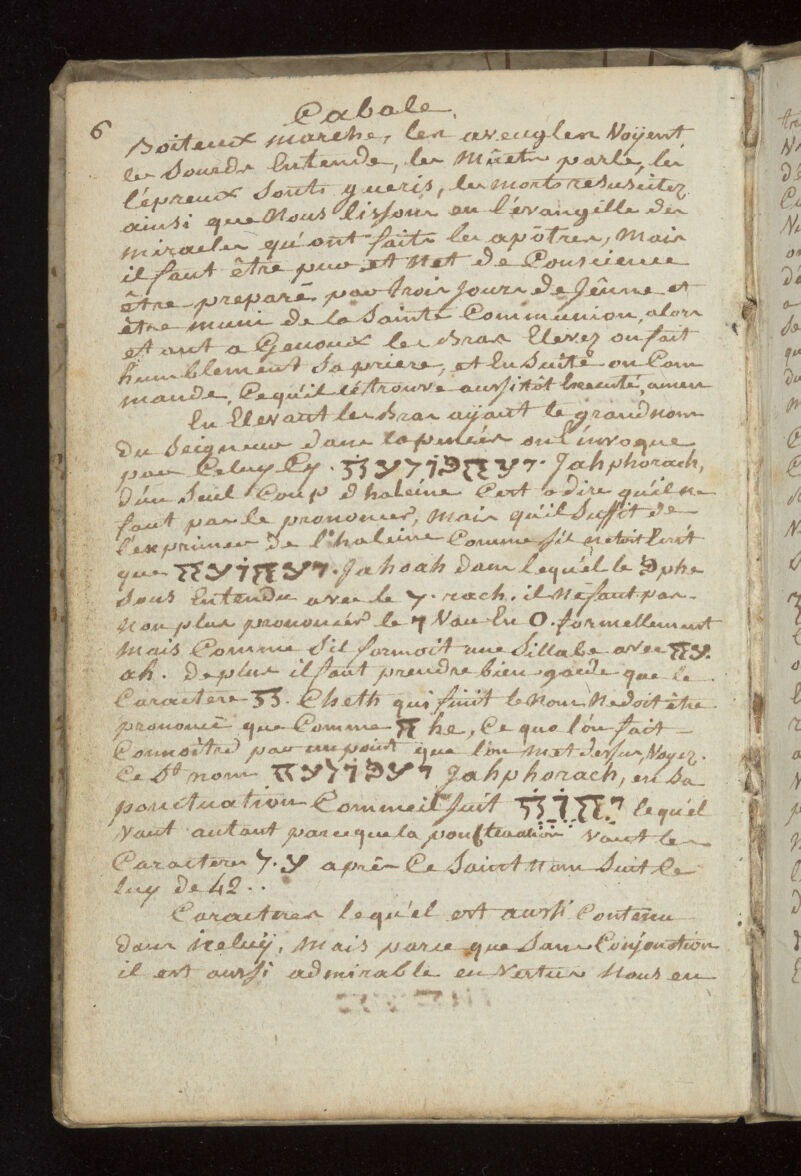 6
Cabale.
Boiteux marche, les aveugles Voyent
les Sourds Entende, les Müets parle, les
lépreux Sonts gueris, les morts resuscitez
ainsi que Nous lissons en l'évangille des
miracles qu'ont faits les apôtres, Mais
il faut être pur et Net de Conscience
être preparé par trois Jours de Jeûne et
être muni de la Sainte Communion, alors
etant a Genoux les Bras Elevez on fait
humblement sa priere, et En Suitte on Com
mande, Ce qu'il s'étrouve aussitôt Executé, amen
En Elevant les Bras ayant le grand nom
Du Seigneur dans la pensées on l'invoque
par Celuy Cy. Jahphorach,
d'un Seul Coup d'haleine C'est a dire qu'il ne
faut pas le prononcer, Mais qu'il Suffit de
l'exprimer de l'haleine Comme s'il n'etoit Ecrit
que יעהועה. Jahoah dans lequ'el le פ phe
Sous Entendu avec le rach. il Ne faut pas
Non plus prononcér le ו Vau En O. formellement
Mais Comme S'il formoit une Sillabe avec עה
ah. De plus il faut prendre bien garde que le
Caractere ח. Cheth qui finit le Nom Ne doit être
prononcé que Comme ה he, Ce que l'on fait
Connoître par un point que l'on met dessus, Voyez.
Ce St nom Jahphorach, en Sa
ponctuation Comme il Suit lequ'el
Vaut autant parceque la ponctuation vaut les
Caracteres ע après Ce Saint Nom Suit le
luy de 42..
Caracteres lequ'el est aussi Contenu
dans iceluÿ, Mais parce que Sans Conjonction
il est aussi admirable en Vertus Nous en